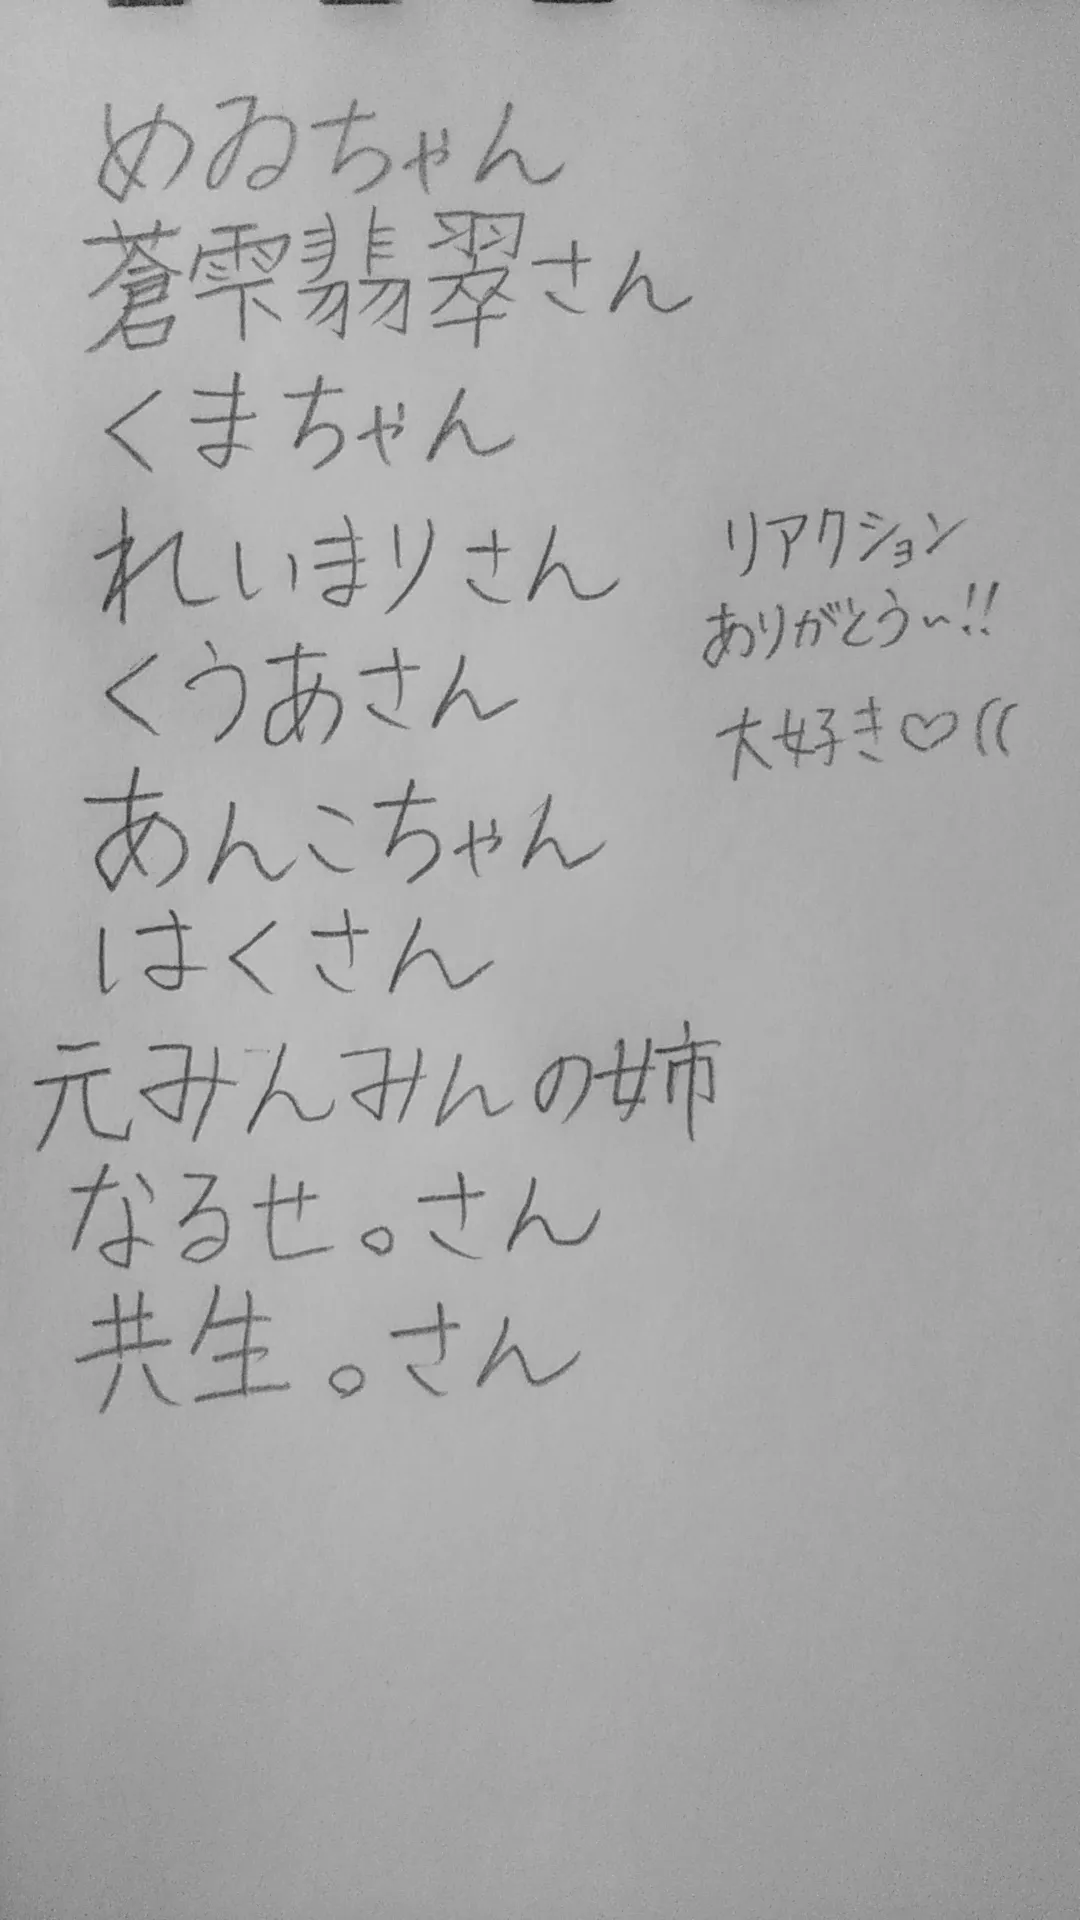 めゐちゃん
蒼雫翡翠さん
くまちゃん
れいまりさん
くうあさん
あんこちゃん
はくさん
元みんみんの姉
なるせ。さん
共生。さん
リアクション
ありがとう〜!!
大好き♡((